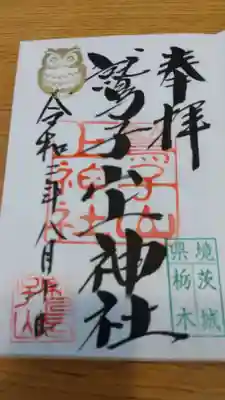 奉拝
鷲子山上神社
令和三年八月
鷲子山
上神社
境 茨城
県 栃木